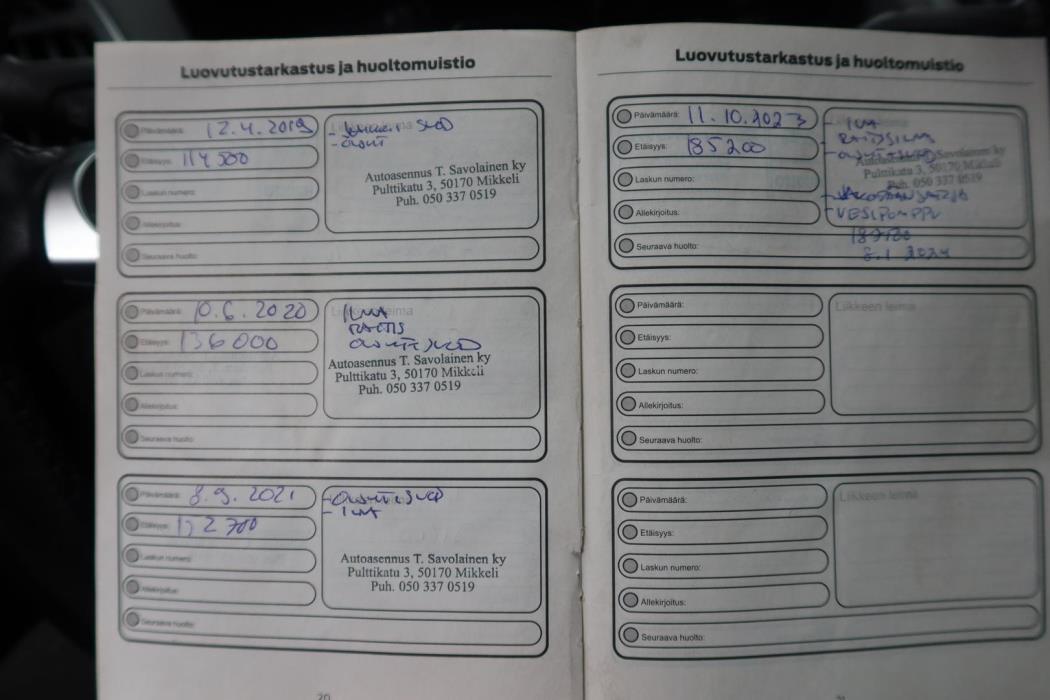 Luovutustarkastus ja huoltomuistio
Päivämäärä: 12.4.2019
Etäisyys: 114 500
Laskun numero:
Allekirjoitus:
Seuraava huolto:
Autoasennus T. Savolainen ky
Pulttikatu 3, 50170 Mikkeli
Puh. 050 337 0519
Päivämäärä: 10.6.2020
Etäisyys: 136 000
Laskun numero:
Allekirjoitus:
Seuraava huolto:
ILMA
Autoasennus T. Savolainen ky
Pulttikatu 3, 50170 Mikkeli
Puh. 050 337 0519
Päivämäärä: 8.9.2021
Etäisyys:
Laskun numero:
Allekirjoitus:
Seuraava huolto:
- ILMA
Autoasennus T. Savolainen ky
Pulttikatu 3, 50170 Mikkeli
Puh. 050 337 0519
20
Luovutustarkastus ja huoltomuistio
Päivämäärä: 11.10.2023
Etäisyys: 185200
Laskun numero:
Allekirjoitus:
Seuraava huolto:
- ILMA
Autoasennus T. Savolainen ky
Pulttikatu 3, 50170 Mikkeli
Puh. 050 337 0519
- VESIPUMPPU
8.1 2024
Päivämäärä:
Etäisyys:
Laskun numero:
Allekirjoitus:
Seuraava huolto:
Liikkeen leima
Päivämäärä:
Etäisyys:
Laskun numero:
Allekirjoitus:
Seuraava huolto:
Liikkeen leima